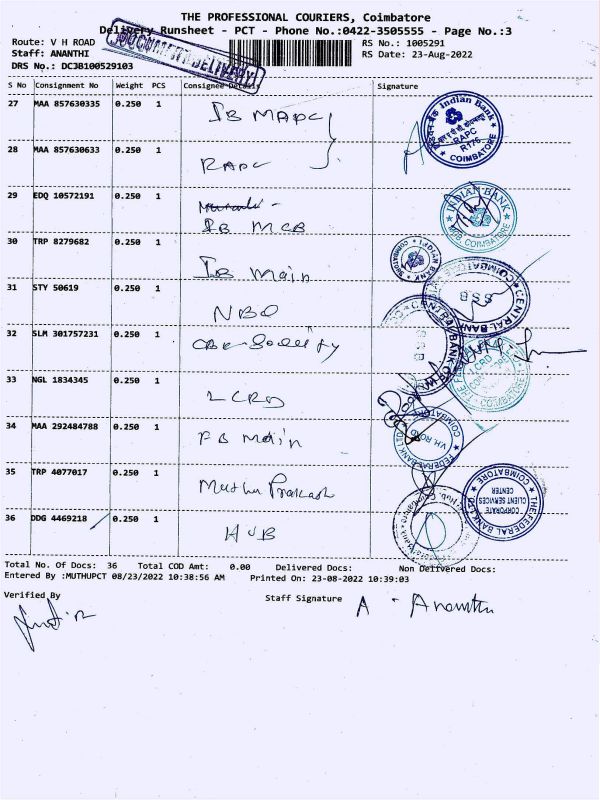 THE PROFESSIONAL COURIERS, Coimbatore
Delivery Runsheet - PCT - Phone No.:0422-3505555 - Page No.:3
DOCUMENT DELIVERY
Route: V H ROAD
RS No.: 1005291
Staff: ANANTHI
RS Date: 23-Aug-2022
DRS No.: DCJB100529103
S No Consignment No Weight PCS Consignee Details Signature
27 MAA 857630335 0.250 1 IB MAPC
28 MAA 857630633 0.250 1 RAPC
Indian Bank
RAPC
COIMBATORE
29 EDQ 10572191 0.250 1
IB MCB
INDIAN BANK
COIMBATORE
30 TRP 8279682 0.250 1 IB Main
INDIAN BANK
COIMBATORE
31 STY 50619 0.250 1 NBO
CENTRAL BANK
COIMBATORE
32 SLM 301757231 0.250 1
CENTRAL BANK
33 NGL 1834345 0.250 1 LCRD
LCRD
COIMBATORE
34 MAA 292484788 0.250 1 FB Main
FEDERAL BANK LTD
V.H. ROAD
COIMBATORE
35 TRP 4077017 0.250 1 Muthu Prakash
THE FEDERAL BANK LTD
CORPORATE
CLIENT SERVICES
CENTER
COIMBATORE
36 DDG 4469218 0.250 1 HUB
Total No. Of Docs: 36 Total COD Amt: 0.00 Delivered Docs: Non Delivered Docs:
Entered By :MUTHUPCT 08/23/2022 10:38:56 AM Printed On: 23-08-2022 10:39:03
Verified By
Staff Signature A. Ananthi